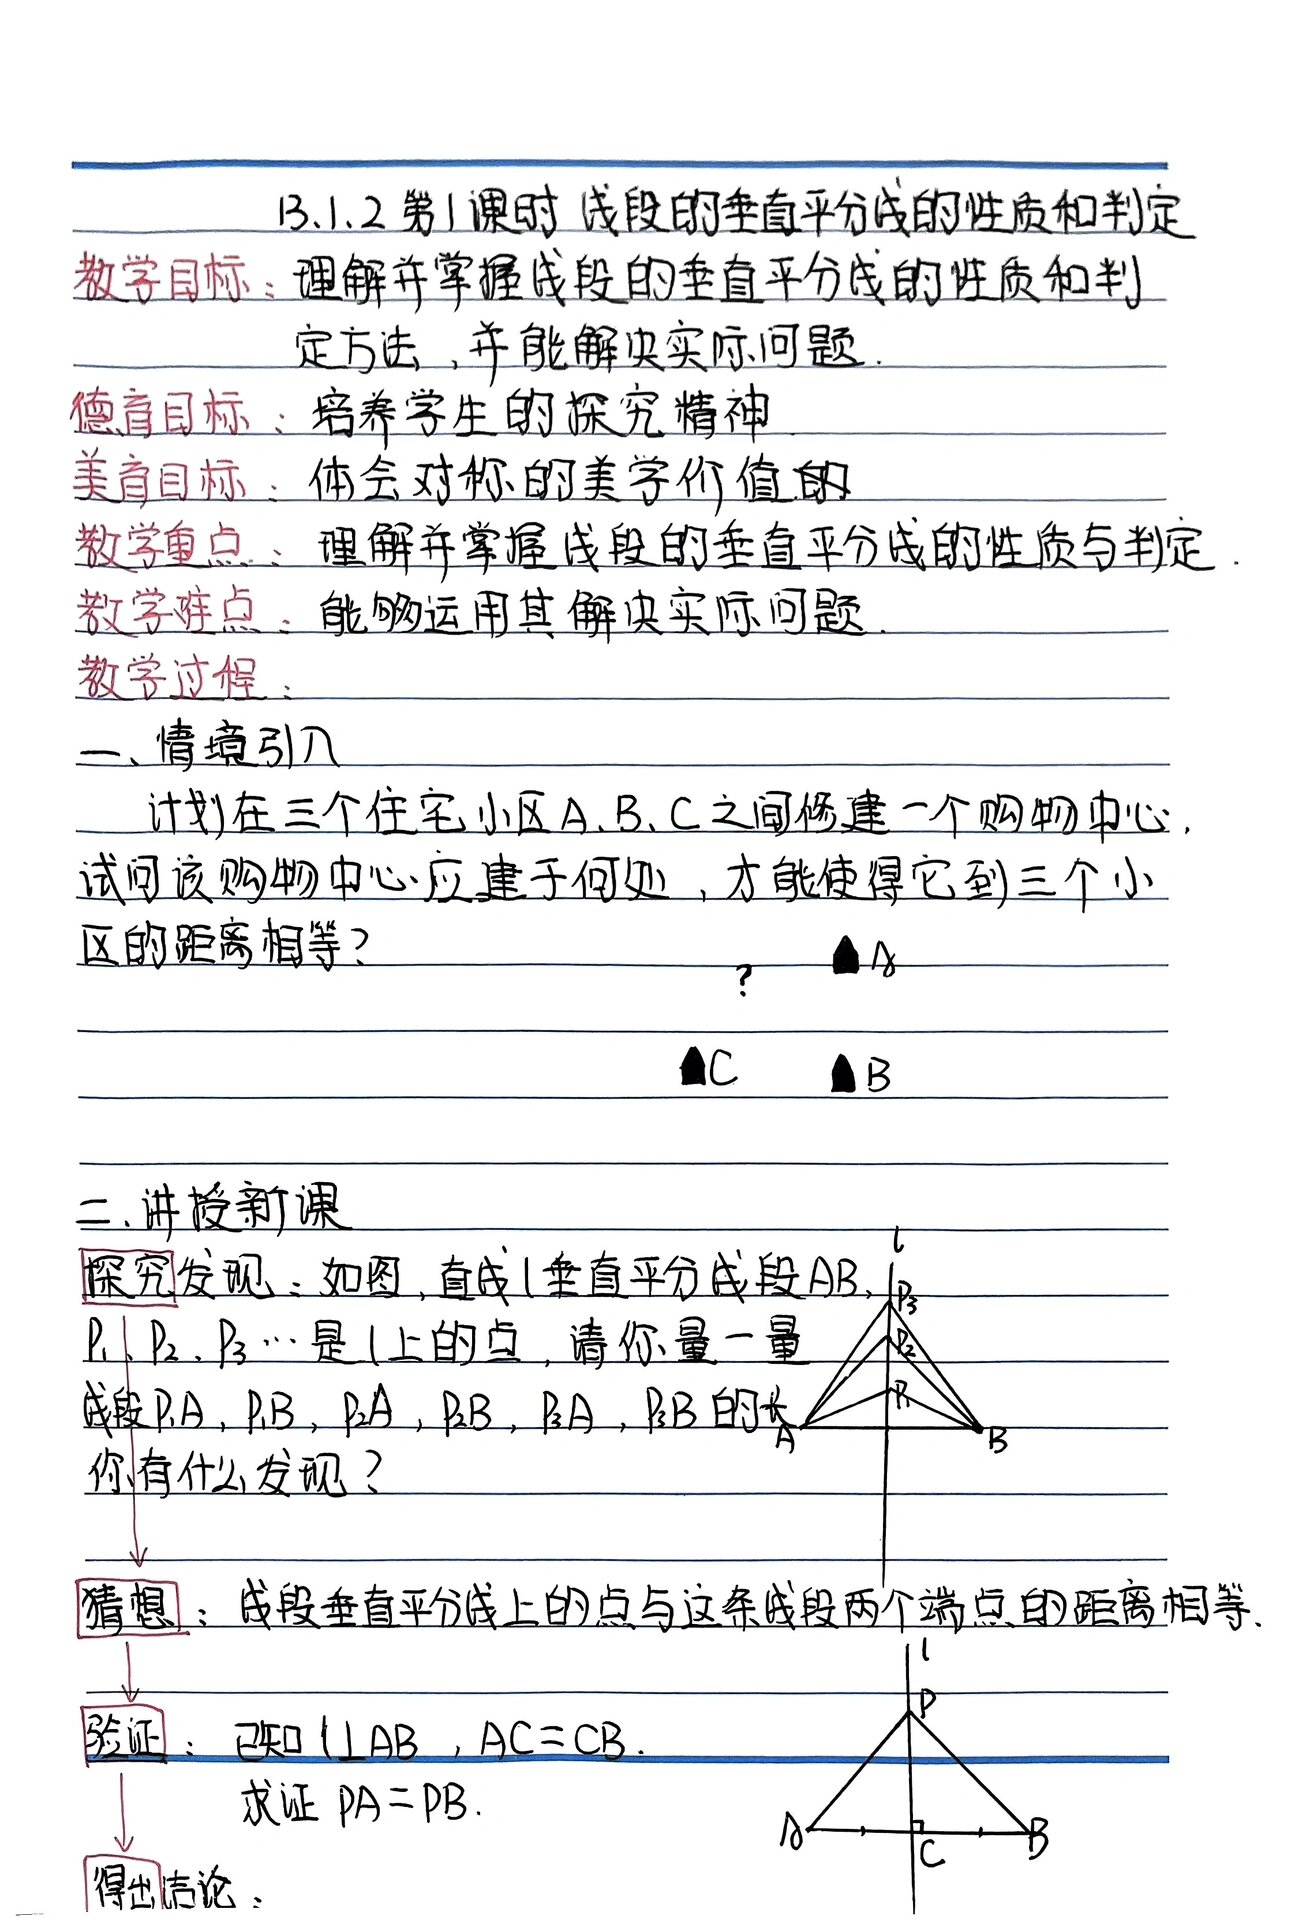 13.1.2 第1课时 线段的垂直平分线的性质和判定
教学目标：理解并掌握线段的垂直平分线的性质和判
定方法，并能解决实际问题.
德育目标：培养学生的探究精神
美育目标：体会对称的美学价值的
教学重点：理解并掌握线段的垂直平分线的性质与判定.
教学难点：能够运用其解决实际问题.
教学过程：
一、情境引入
计划在三个住宅小区A、B、C之间修建一个购物中心，
试问该购物中心应建于何处，才能使得它到三个小
区的距离相等？
A
?
C
B
二、讲授新课
l
探究发现：如图，直线l垂直平分线段AB，
P3
P1、P2、P3…是l上的点，请你量一量
P2
线段P1A，P1B，P2A，P2B，P3A，P3B的长
P1
A
B
你有什么发现？
猜想：线段垂直平分线上的点与这条线段两个端点的距离相等.
l
P
验证：已知l⊥AB，AC=CB.
求证PA=PB.
A
C
B
得出结论：